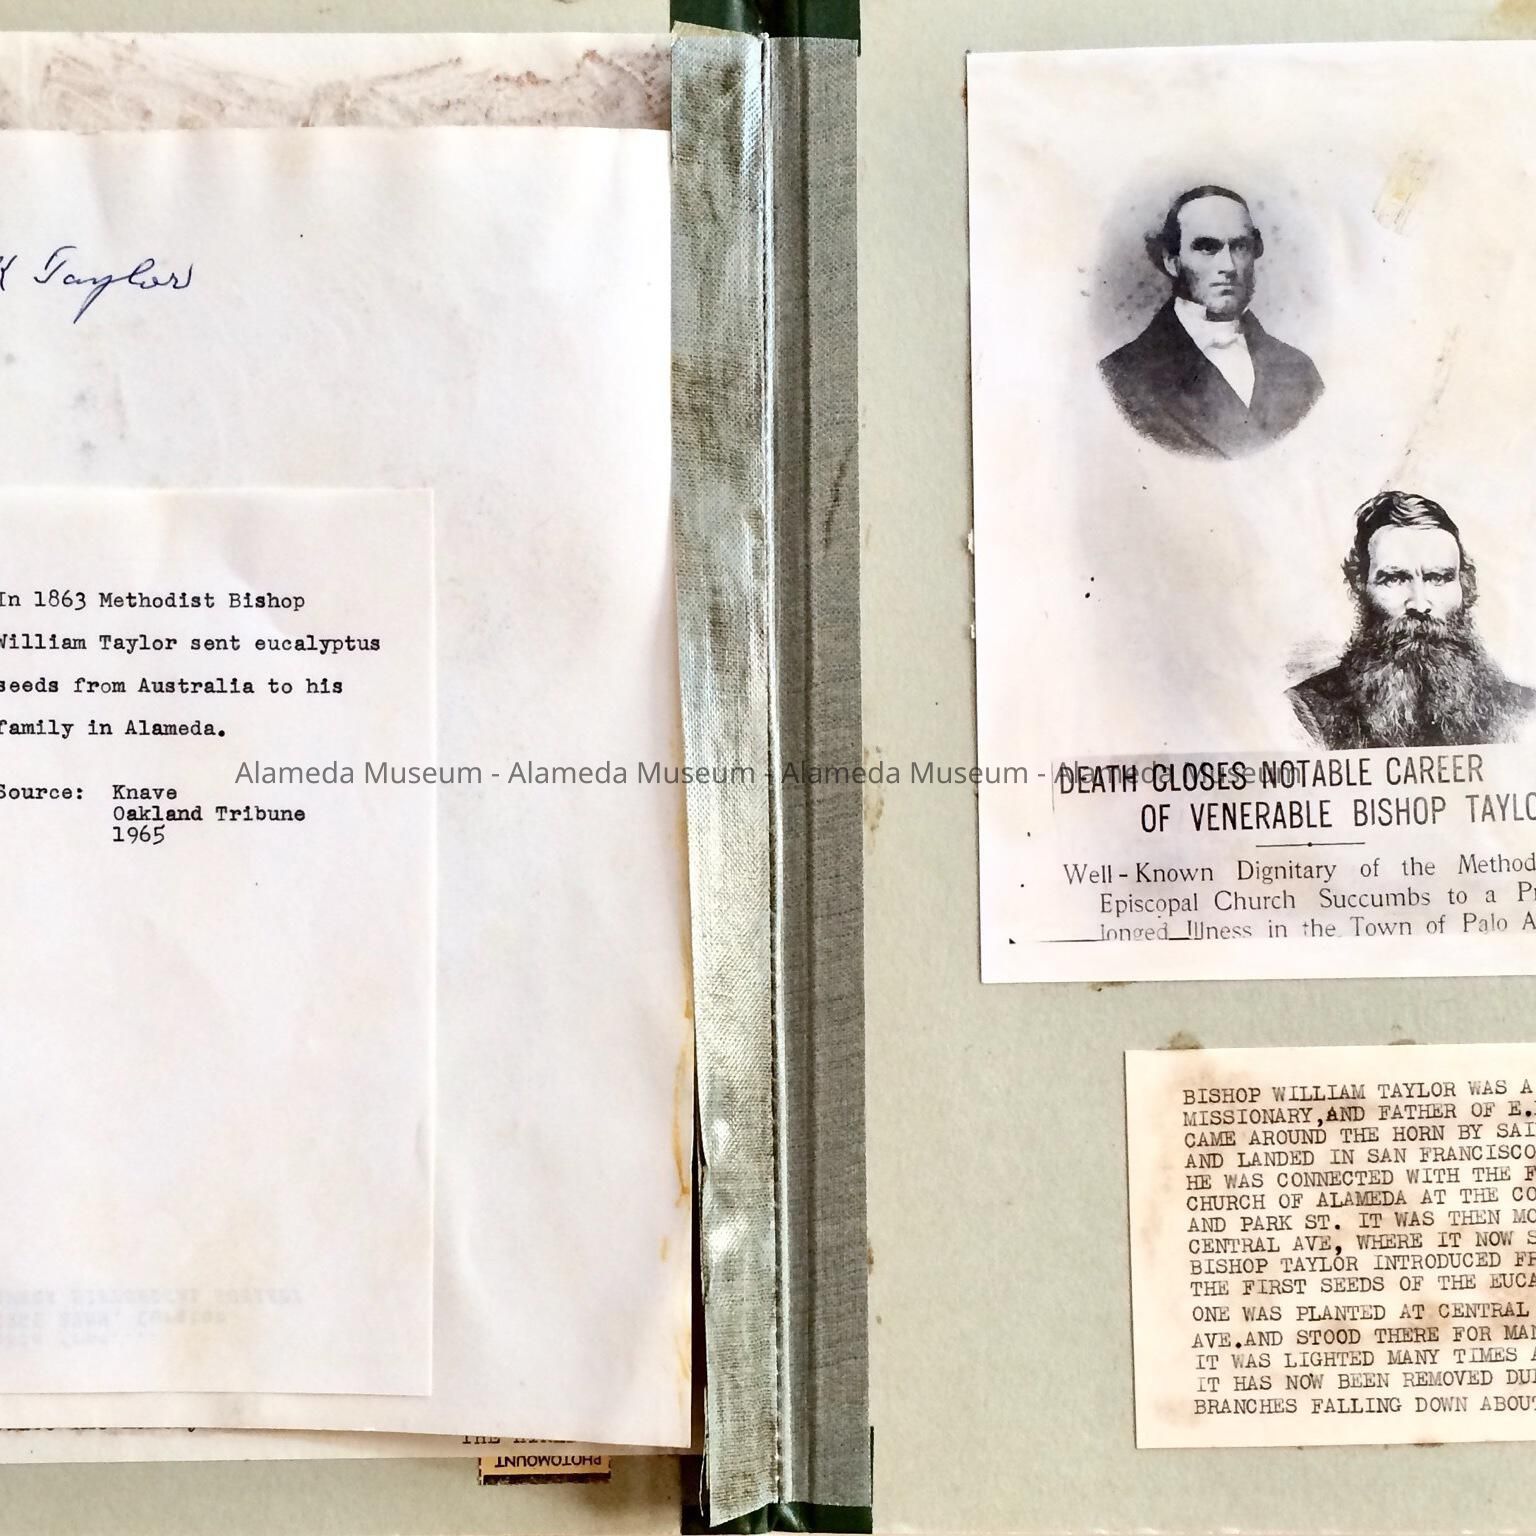 Taylor
In 1863 Methodist Bishop
William Taylor sent eucalyptus
seeds from Australia to his
family in Alameda.
Source: Knave
Oakland Tribune
1965
PHOTOMOUNT
Alameda Museum - Alameda Museum - Alameda Museum - Alameda Museum
DEATH CLOSES NOTABLE CAREER
OF VENERABLE BISHOP TAYLO
Well-Known Dignitary of the Method
Episcopal Church Succumbs to a Pr
longed Illness in the Town of Palo A
BISHOP WILLIAM TAYLOR WAS A
MISSIONARY, AND FATHER OF E.
CAME AROUND THE HORN BY SAI
AND LANDED IN SAN FRANCISCO
HE WAS CONNECTED WITH THE F
CHURCH OF ALAMEDA AT THE CO
AND PARK ST. IT WAS THEN MO
CENTRAL AVE, WHERE IT NOW S
BISHOP TAYLOR INTRODUCED FR
THE FIRST SEEDS OF THE EUCA
ONE WAS PLANTED AT CENTRAL
AVE.AND STOOD THERE FOR MAN
IT WAS LIGHTED MANY TIMES A
IT HAS NOW BEEN REMOVED DUE
BRANCHES FALLING DOWN ABOUT